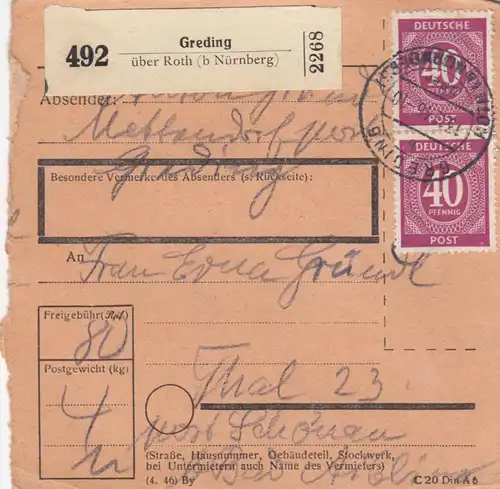 492
Greding
über Roth (b Nürnberg)
2268
DEUTSCHE
40
DEUTSCHE
40
PFENNIG
POST
GREDING
Absender:
Mettendorf post
Greding
Besondere Vermerke des Absenders (s. Rückseite):
An
Frau Erna Gründl
Freigebühr (Rpf.)
80
Postgewicht (kg)
4
Thal 23
post Schönau
(Straße, Hausnummer, Gebäudeteil, Stockwerk,
bei Untermietern auch Name des Vermieters)
Bad Aibling
(4. 46) By
C 20 Din A 6